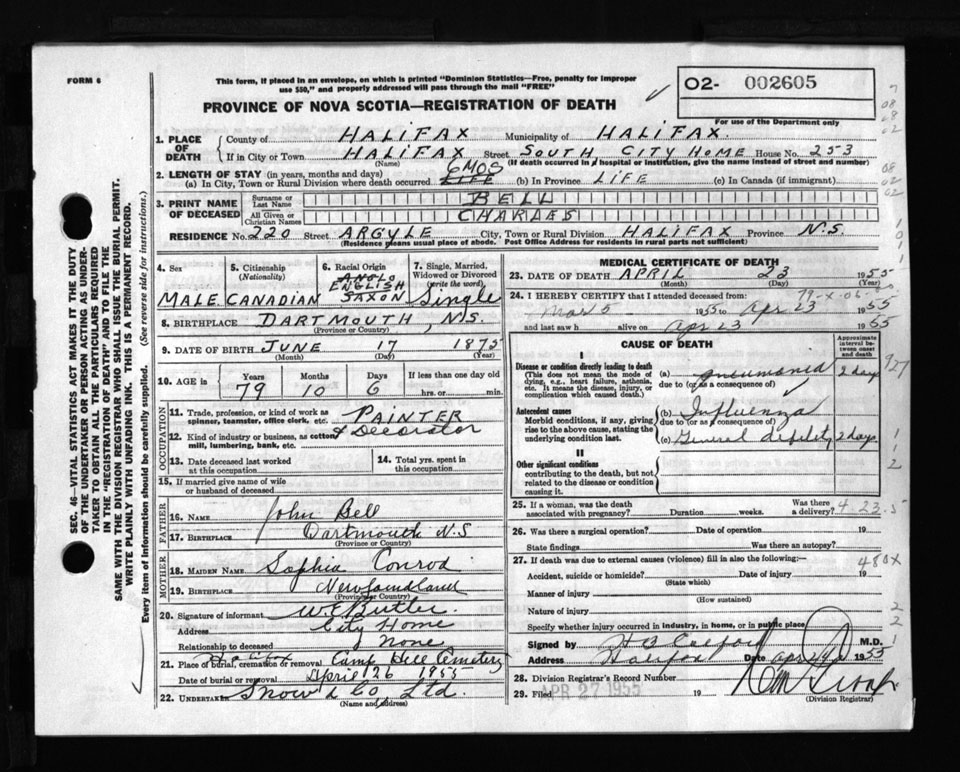 FORM 6
This form, if placed in an envelope, on which is printed "Dominion Statistics—Free, penalty for improper
use $50," and properly addressed will pass through the mail "FREE"
PROVINCE OF NOVA SCOTIA—REGISTRATION OF DEATH
O2- 002605
For use of the Department only
1. PLACE OF DEATH
County of HALIFAX Municipality of HALIFAX.
If in City or Town HALIFAX Street SOUTH CITY HOME House No. 253
(Name) (If death occurred in a hospital or institution, give the name instead of street and number)
2. LENGTH OF STAY (in years, months and days) 6 MOS
(a) In City, Town or Rural Division where death occurred LIFE (b) In Province LIFE (c) In Canada (if immigrant)
3. PRINT NAME OF DECEASED
Surname or Last Name BELL
All Given or Christian Names CHARLES
RESIDENCE No. 220 Street ARGYLE City, Town or Rural Division HALIFAX Province N.S.
(Residence means usual place of abode. Post Office Address for residents in rural parts not sufficient)
4. Sex MALE
5. Citizenship (Nationality) CANADIAN
6. Racial Origin ANGLO ENGLISH SAXON
7. Single, Married, Widowed or Divorced (write the word) Single
8. BIRTHPLACE DARTMOUTH, N.S.
(Province or Country)
9. DATE OF BIRTH JUNE 17 1875
(Month) (Day) (Year)
10. AGE in Years Months Days If less than one day old
79 10 6 hrs. or min.
OCCUPATION
11. Trade, profession, or kind of work as spinner, teamster, office clerk, etc. PAINTER
12. Kind of industry or business, as cotton mill, lumbering, bank, etc. & Decorator
13. Date deceased last worked at this occupation
14. Total yrs. spent in this occupation
15. If married give name of wife or husband of deceased
FATHER
16. NAME John Bell
17. BIRTHPLACE Dartmouth N.S
(Province or Country)
MOTHER
18. MAIDEN NAME Sophia Conrod
19. BIRTHPLACE Newfoundland
(Province or Country)
20. Signature of informant W E Butler.
Address City Home
Relationship to deceased None
21. Place of burial, cremation or removal Halifax Camp Hill Cemetery
Date of burial or removal April 26 1955
22. UNDERTAKER Snow & Co, Ltd.
(Name and address)
MEDICAL CERTIFICATE OF DEATH
23. DATE OF DEATH APRIL 23 1955
(Month) (Day) (Year)
24. I HEREBY CERTIFY that I attended deceased from:
Mar 5 1955 to Apr 23 1955
and last saw h alive on Apr 23 1955
CAUSE OF DEATH
Approximate interval between onset and death
I
Disease or condition directly leading to death
(This does not mean the mode of dying, e.g., heart failure, asthenia, etc. It means the disease, injury, or complication which caused death.)
(a) pneumonia 2 days
due to (or as a consequence of)
Antecedent causes
Morbid conditions, if any, giving rise to the above cause, stating the underlying condition last.
(b) Influenza
due to (or as a consequence of)
(c) General debility 2 days
II
Other significant conditions
contributing to the death, but not related to the disease or condition causing it.
927
25. If a woman, was the death associated with pregnancy? Duration weeks. Was there a delivery? 4 23.5
26. Was there a surgical operation? Date of operation 19
State findings Was there an autopsy?
27. If death was due to external causes (violence) fill in also the following:— 480x
Accident, suicide or homicide? Date of injury 19
(State which)
Manner of injury
(How sustained)
Nature of injury
Specify whether injury occurred in industry, in home, or in public place
Signed by M.D.
Address Halifax Date Apr 1955
28. Division Registrar's Record Number
29. Filed APR 27 1955 19
(Division Registrar)
SEC. 46—VITAL STATISTICS ACT MAKES IT THE DUTY
OF THE UNDERTAKER OR PERSON ACTING AS UNDER-
TAKER TO OBTAIN ALL THE PARTICULARS REQUIRED
IN THE "REGISTRATION OF DEATH" AND TO FILE THE
SAME WITH THE DIVISION REGISTRAR WHO SHALL ISSUE THE BURIAL PERMIT.
WRITE PLAINLY WITH UNFADING INK. THIS IS A PERMANENT RECORD.
Every item of Information should be carefully supplied. (See reverse side for instructions.)